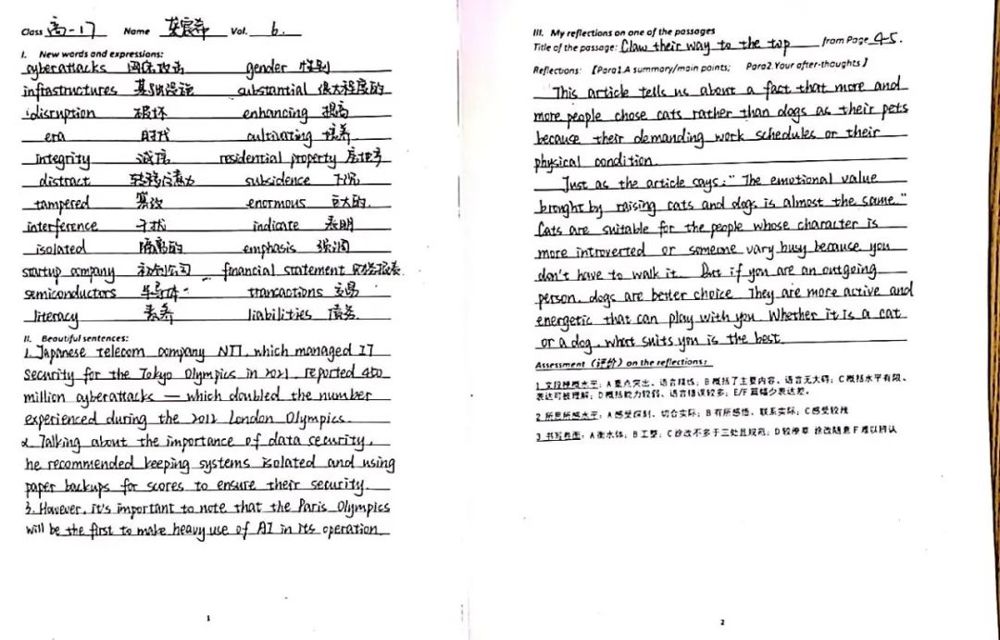 Class 高一17 Name 黄宸希 Vol. 6.
I. New words and expressions:
cyberattacks 网络攻击 gender 性别
infrastructures 基础设施 substantial 很大程度的
disruption 破坏 enhancing 提高
era 时代 cultivating 培养
integrity 诚信 residential property 房地产
distract 转移注意力 subsidence 下沉
tampered 篡改 enormous 巨大的
interference 干扰 indicate 表明
isolated 隔离的 emphasis 强调
startup company 初创公司 financial statement 财务报表
semiconductors 半导体 trancactions 交易
literacy 素养 liabilities 债务
II. Beautiful sentences:
1. Japanese telecom company NTT, which managed IT
Security for the Tokyo Olympics in 2021, reported 450
million cyberattacks — which doubled the number
experienced during the 2012 London Olympics.
2. Talking about the importance of data security,
he recommended keeping systems isolated and using
paper backups for scores to ensure their security.
3. However, it's important to note that the Paris Olympics
will be the first to make heavy use of AI in its operation.
1
III. My reflections on one of the passages
Title of the passage: Claw their way to the top from Page 4-5.
Reflections: [Para1.A summary/main points; Para2.Your after-thoughts]
This article tells us about a fact that more and
more people chose cats rather than dogs as their pets
because their demanding work schedules or their
physical condition.
Just as the article says: "The emotional value
brought by raising cats and dogs is almost the same."
Cats are suitable for the people whose character is
more introverted or someone vary busy because you
don't have to walk it. But if you are an outgoing
person, dogs are better choice. They are more active and
energetic that can play with you. Whether it is a cat
or a dog, what suits you is the best.
Assessment (评价) on the reflections:
1 文段梗概水平: A 重点突出、语言精炼; B 概括了主要内容、语言无大碍; C 概括水平有限、
表达可被理解; D 概括能力较弱、语言错误较多; E/F 篇幅少表达差。
2 所思所感水平: A 感受深刻、切合实际; B 有所感悟、联系实际; C 感受较浅
3 书写卷面: A 衡水体; B 工整; C 涂改不多于三处且规范; D 较潦草 涂改随意 F 难以辨认
2